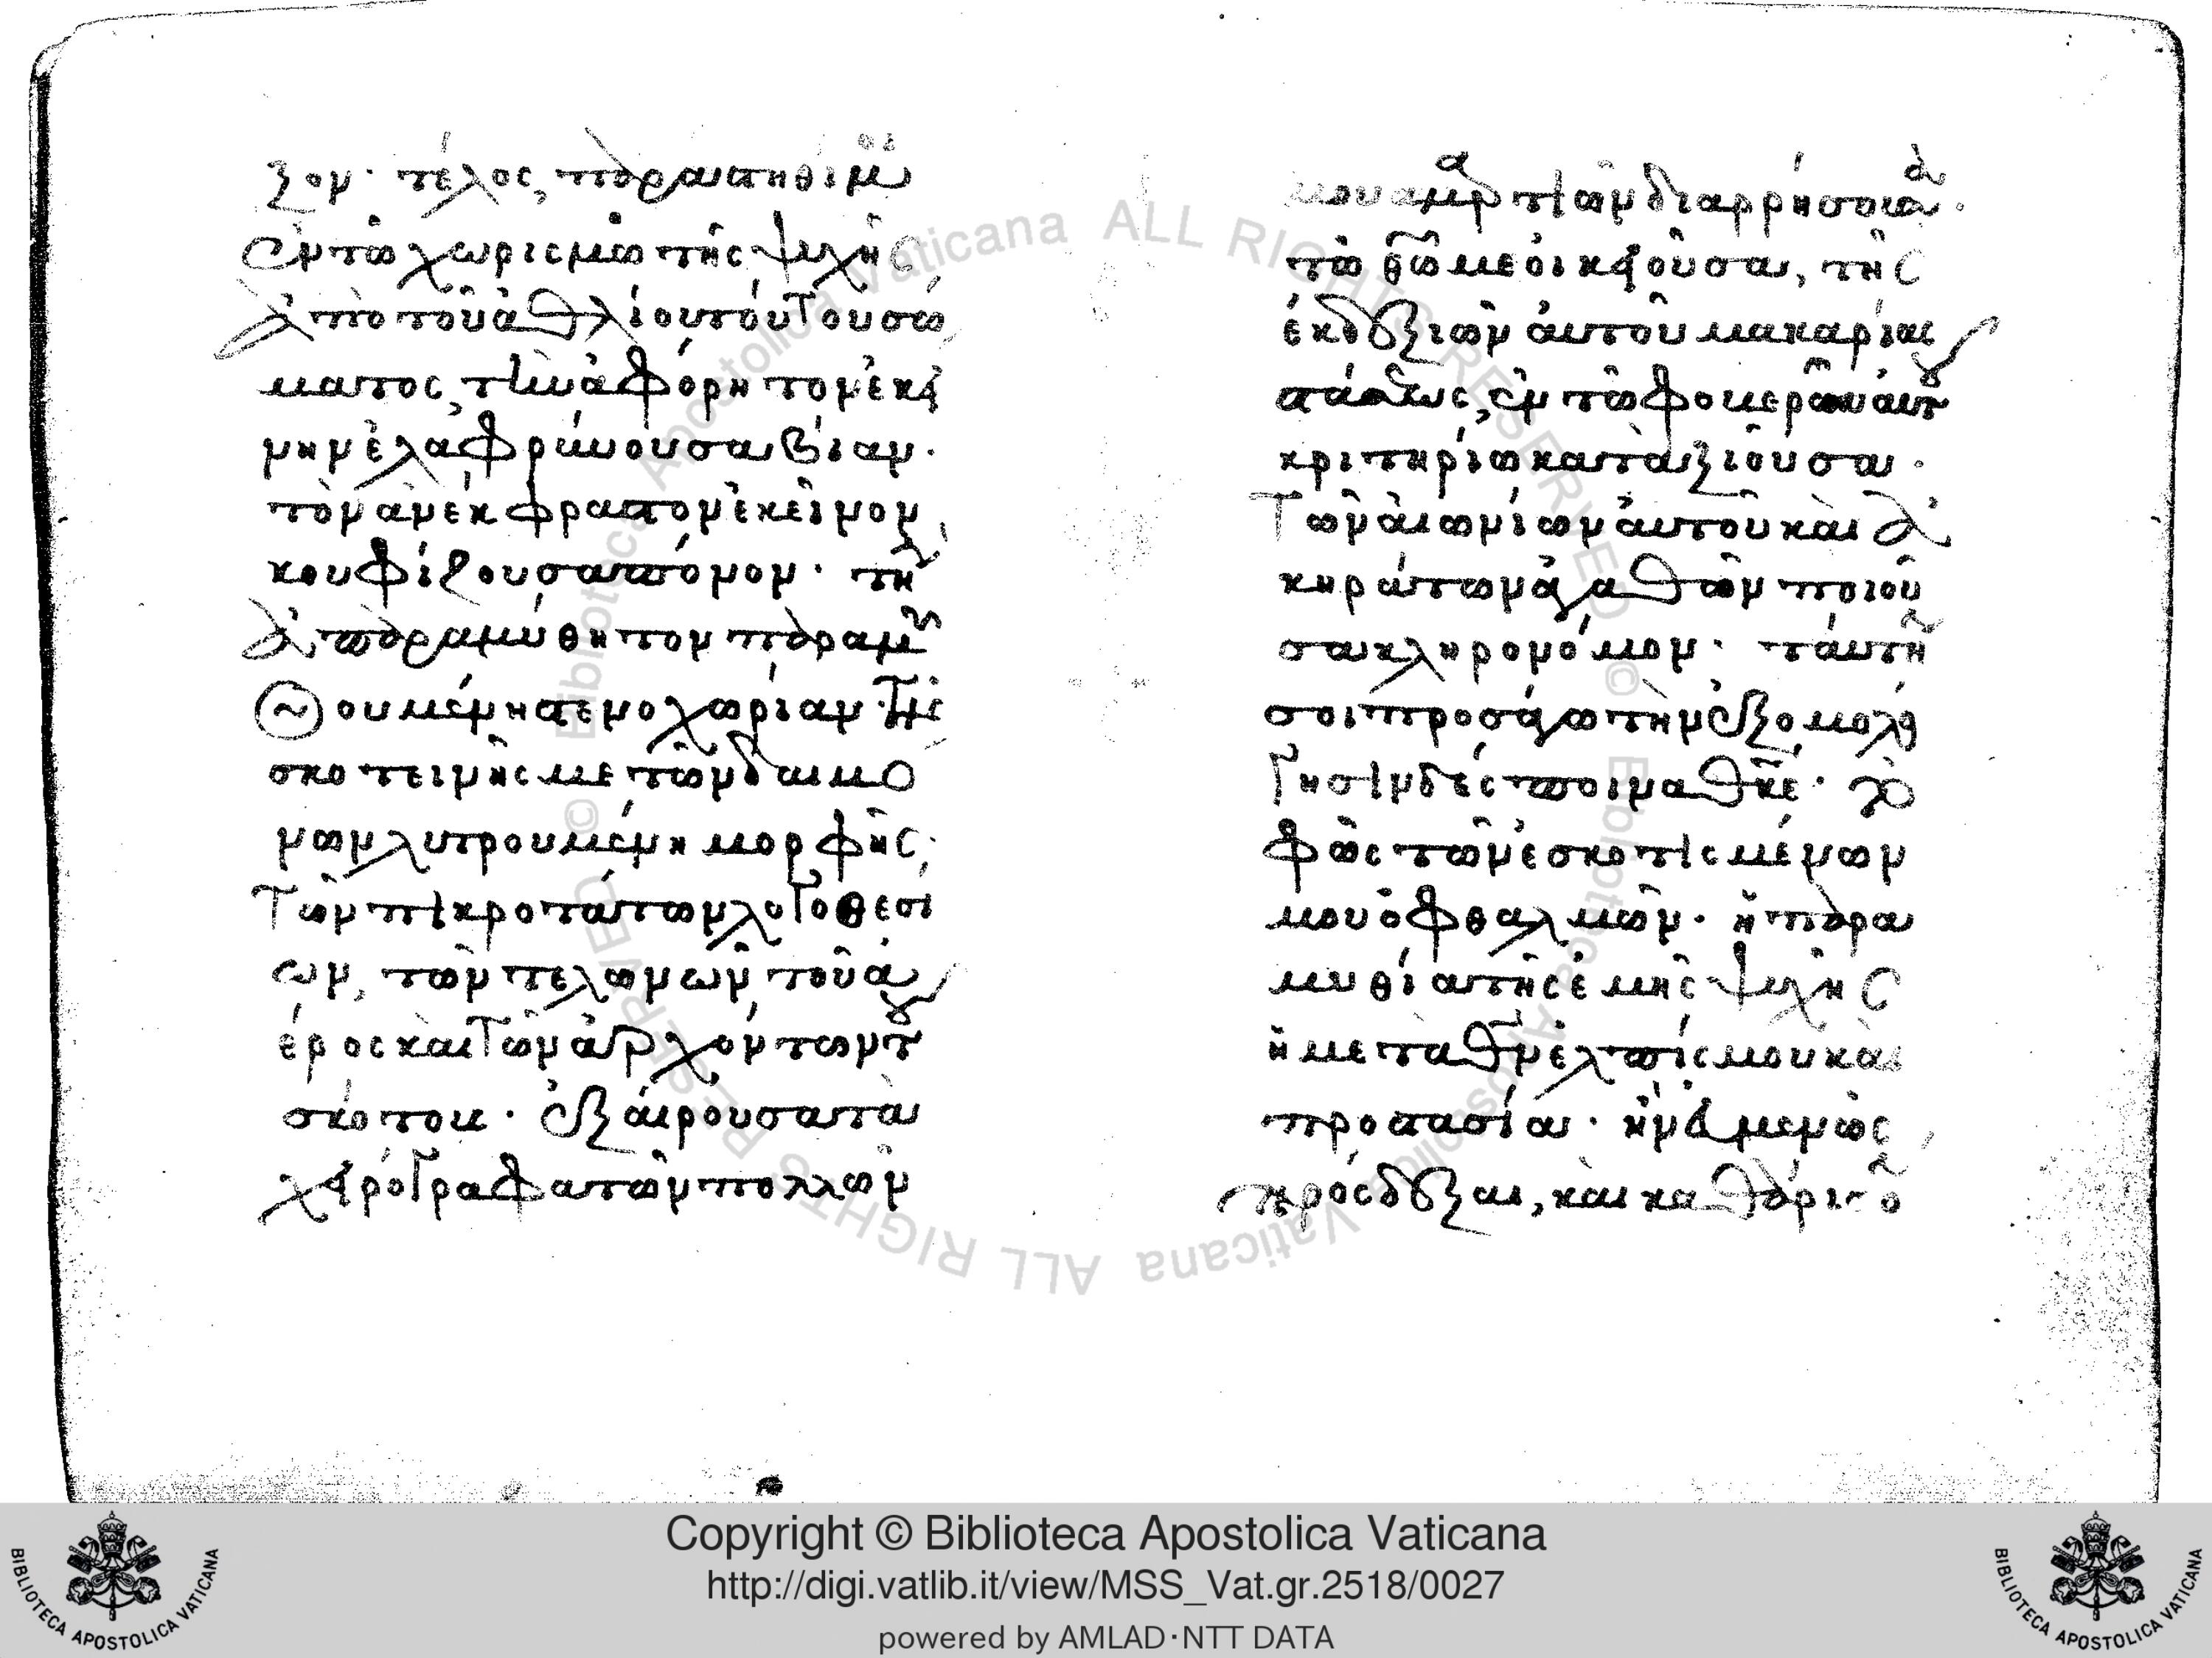 ξον· τέλος, παράστηθί μοι
ἐν τῶ χωρισμῶ τῆς ψυχῆς
ἀπὸ τοῦ ἀθλίου τούτου σώ
ματος, τὴν ἀφόρητον ἐκεί
νην ἐλαφρύνουσα βίαν·
τὸν ἀνέκφραστον ἐκεῖνον
κουφίζουσα πόνον· τὴν
ἀπαραμύθητον παραμυ
θουμένη στενοχωρίαν· τῆς
σκοτεινῆς με τῶν δαιμό
νων λυτρουμένη μορφῆς,
τῶν πικροτάτων λογοθεσί
ων, τῶν τελωνῶν τοῦ ἀ
έρος καὶ τῶν ἀρχόντων τοῦ
σκότους· ἐξαίρουσα τὰ
χειρόγραφα τῶν πολλῶν
μου ἁμαρτιῶν διαρρήσουσα·
τῶ θῶ με οἰκειοῦσα, τῆς
ἐκ δεξιῶν αὐτοῦ μακαρίας
στάσεως, ἐν τῶ φοβερῶ αὐτοῦ
κριτηρίω καταξιοῦσα·
τῶν αἰωνίων αὐτοῦ καὶ ἀ
κηράτων ἀγαθῶν ποιοῦ
σα κληρονόμον· ταύτην
σοι προσάγω τὴν ἐξομολό
γησιν δέσποινα θκε· τὸ
φῶς τῶν ἐσκοτισμένων
μου ὀφθαλμῶν· ἡ παρα
μυθία τῆς ἐμῆς ψυχῆς
ἡ μετὰ θν ἐλπίς μου καὶ
προστασία· ἣν εὐμενῶς
πρόσδεξαι, καὶ καθάρισον
Copyright © Biblioteca Apostolica Vaticana
http://digi.vatlib.it/view/MSS_Vat.gr.2518/0027
powered by AMLAD·NTT DATA
BIBLIOTECA APOSTOLICA VATICANA
BIBLIOTECA APOSTOLICA VATICANA